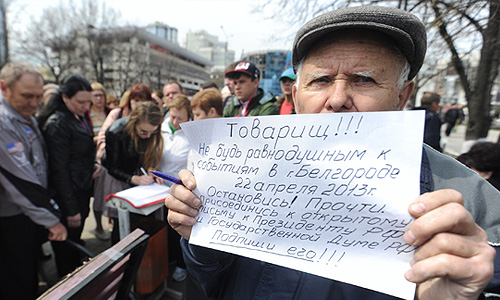 Товарищ!!!
Не будь равнодушным к
событиям в г. Белгороде
22 апреля 2013г.
Остановись! Прочти,
присоединись к открытому
письму к Президенту РФ
и Государственной Думе РФ
Подпиши его!!!